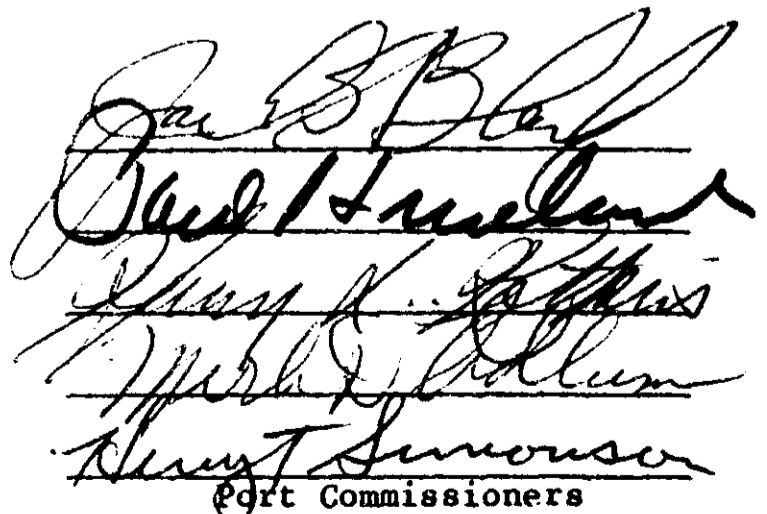 Jack Block
Paul
Henry Kotkins
Merle D. Adlum
Henry T Simonson
Port Commissioners